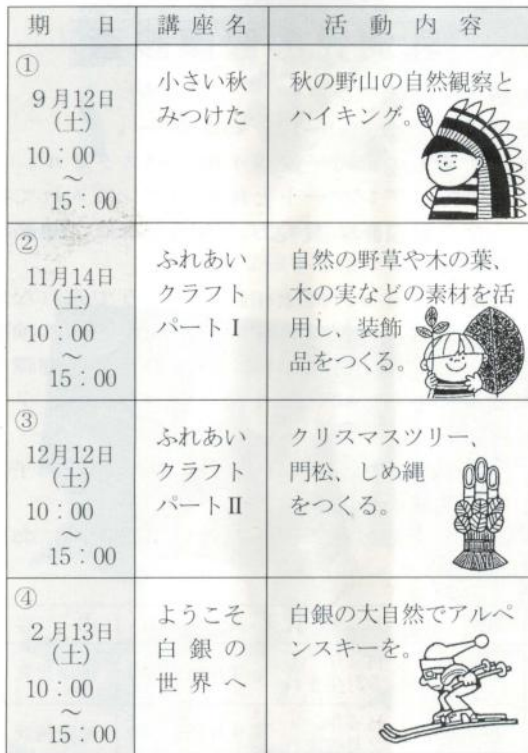 期　日　講座名　活動内容
①
9月12日
(土)
10：00
～
15：00
小さい秋
みつけた
秋の野山の自然観察と
ハイキング。
②
11月14日
(土)
10：00
～
15：00
ふれあい
クラフト
パートⅠ
自然の野草や木の葉、
木の実などの素材を活
用し、装飾
品をつくる。
③
12月12日
(土)
10：00
～
15：00
ふれあい
クラフト
パートⅡ
クリスマスツリー、
門松、しめ縄
をつくる。
④
2月13日
(土)
10：00
～
15：00
ようこそ
白銀の
世界へ
白銀の大自然でアルペ
ンスキーを。